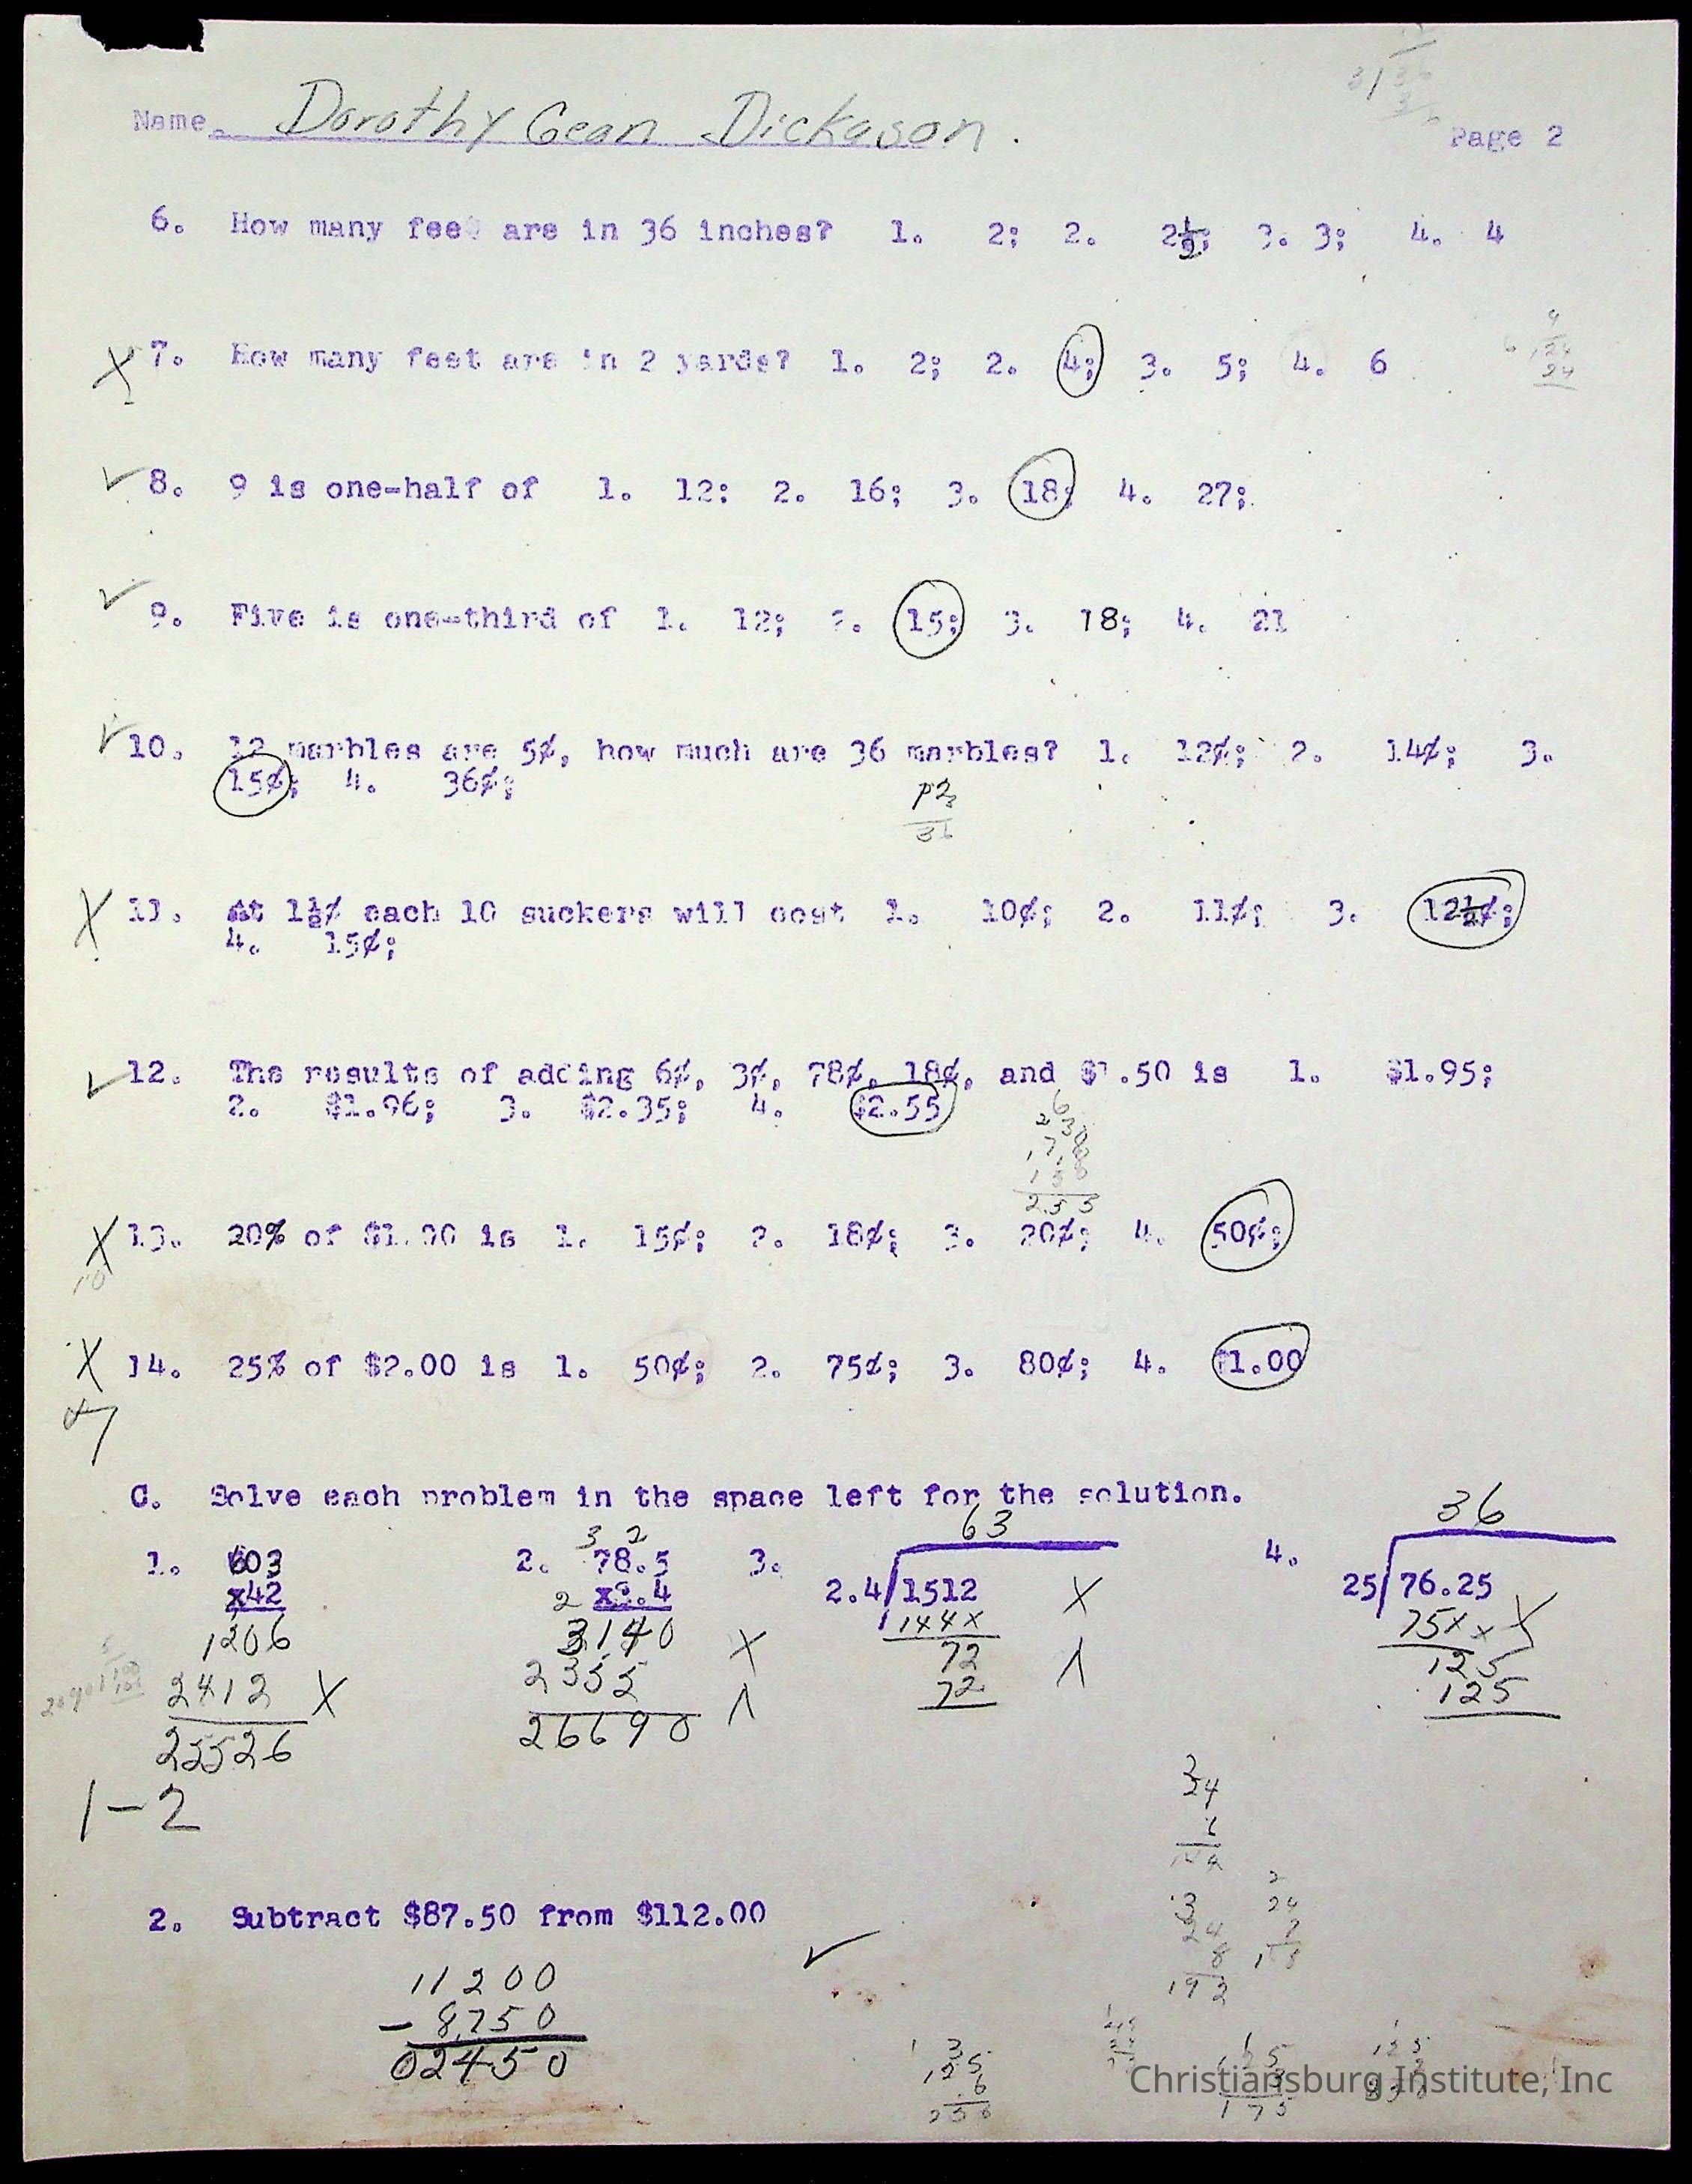 Name. Dorothy Gean Dickason.
Page 2
6. How many feet are in 36 inches? 1. 2; 2. 2½; 3. 3; 4. 4
X 7. How many feet are in 2 yards? 1. 2; 2. 4; 3. 5; 4. 6
✓ 8. 9 is one-half of 1. 12: 2. 16; 3. 18; 4. 27;
✓ 9. Five is one-third of 1. 12; 2. 15; 3. 18; 4. 21
✓ 10. 12 marbles are 5¢, how much are 36 marbles? 1. 12¢; 2. 14¢; 3.
15¢; 4. 36¢;
X 11. At 1½¢ each 10 suckers will cost 1. 10¢; 2. 11¢; 3. 12½¢;
4. 15¢;
✓ 12. The results of adding 6¢, 3¢, 78¢, 18¢, and $1.50 is 1. $1.95;
2. $1.96; 3. $2.35; 4. $2.55
255
X 13. 20% of $1.00 is 1. 15¢; 2. 18¢; 3. 20¢; 4. 50¢;
X 14. 25% of $2.00 is 1. 50¢; 2. 75¢; 3. 80¢; 4. $1.00
C. Solve each problem in the space left for the solution.
3 2 63 36
1. 603 2. 78.5 3. 2.4/1512 X 4. 25/76.25 X
x42 2 x3.4 144x 75xx
1206 3140 X 72 125
2412 X 2355 72 125
25526 26690
1-2
2. Subtract $87.50 from $112.00
✓
11200
- 8750
02450
34
6
3
24
8
192
2
24
Christiansburg Institute, Inc